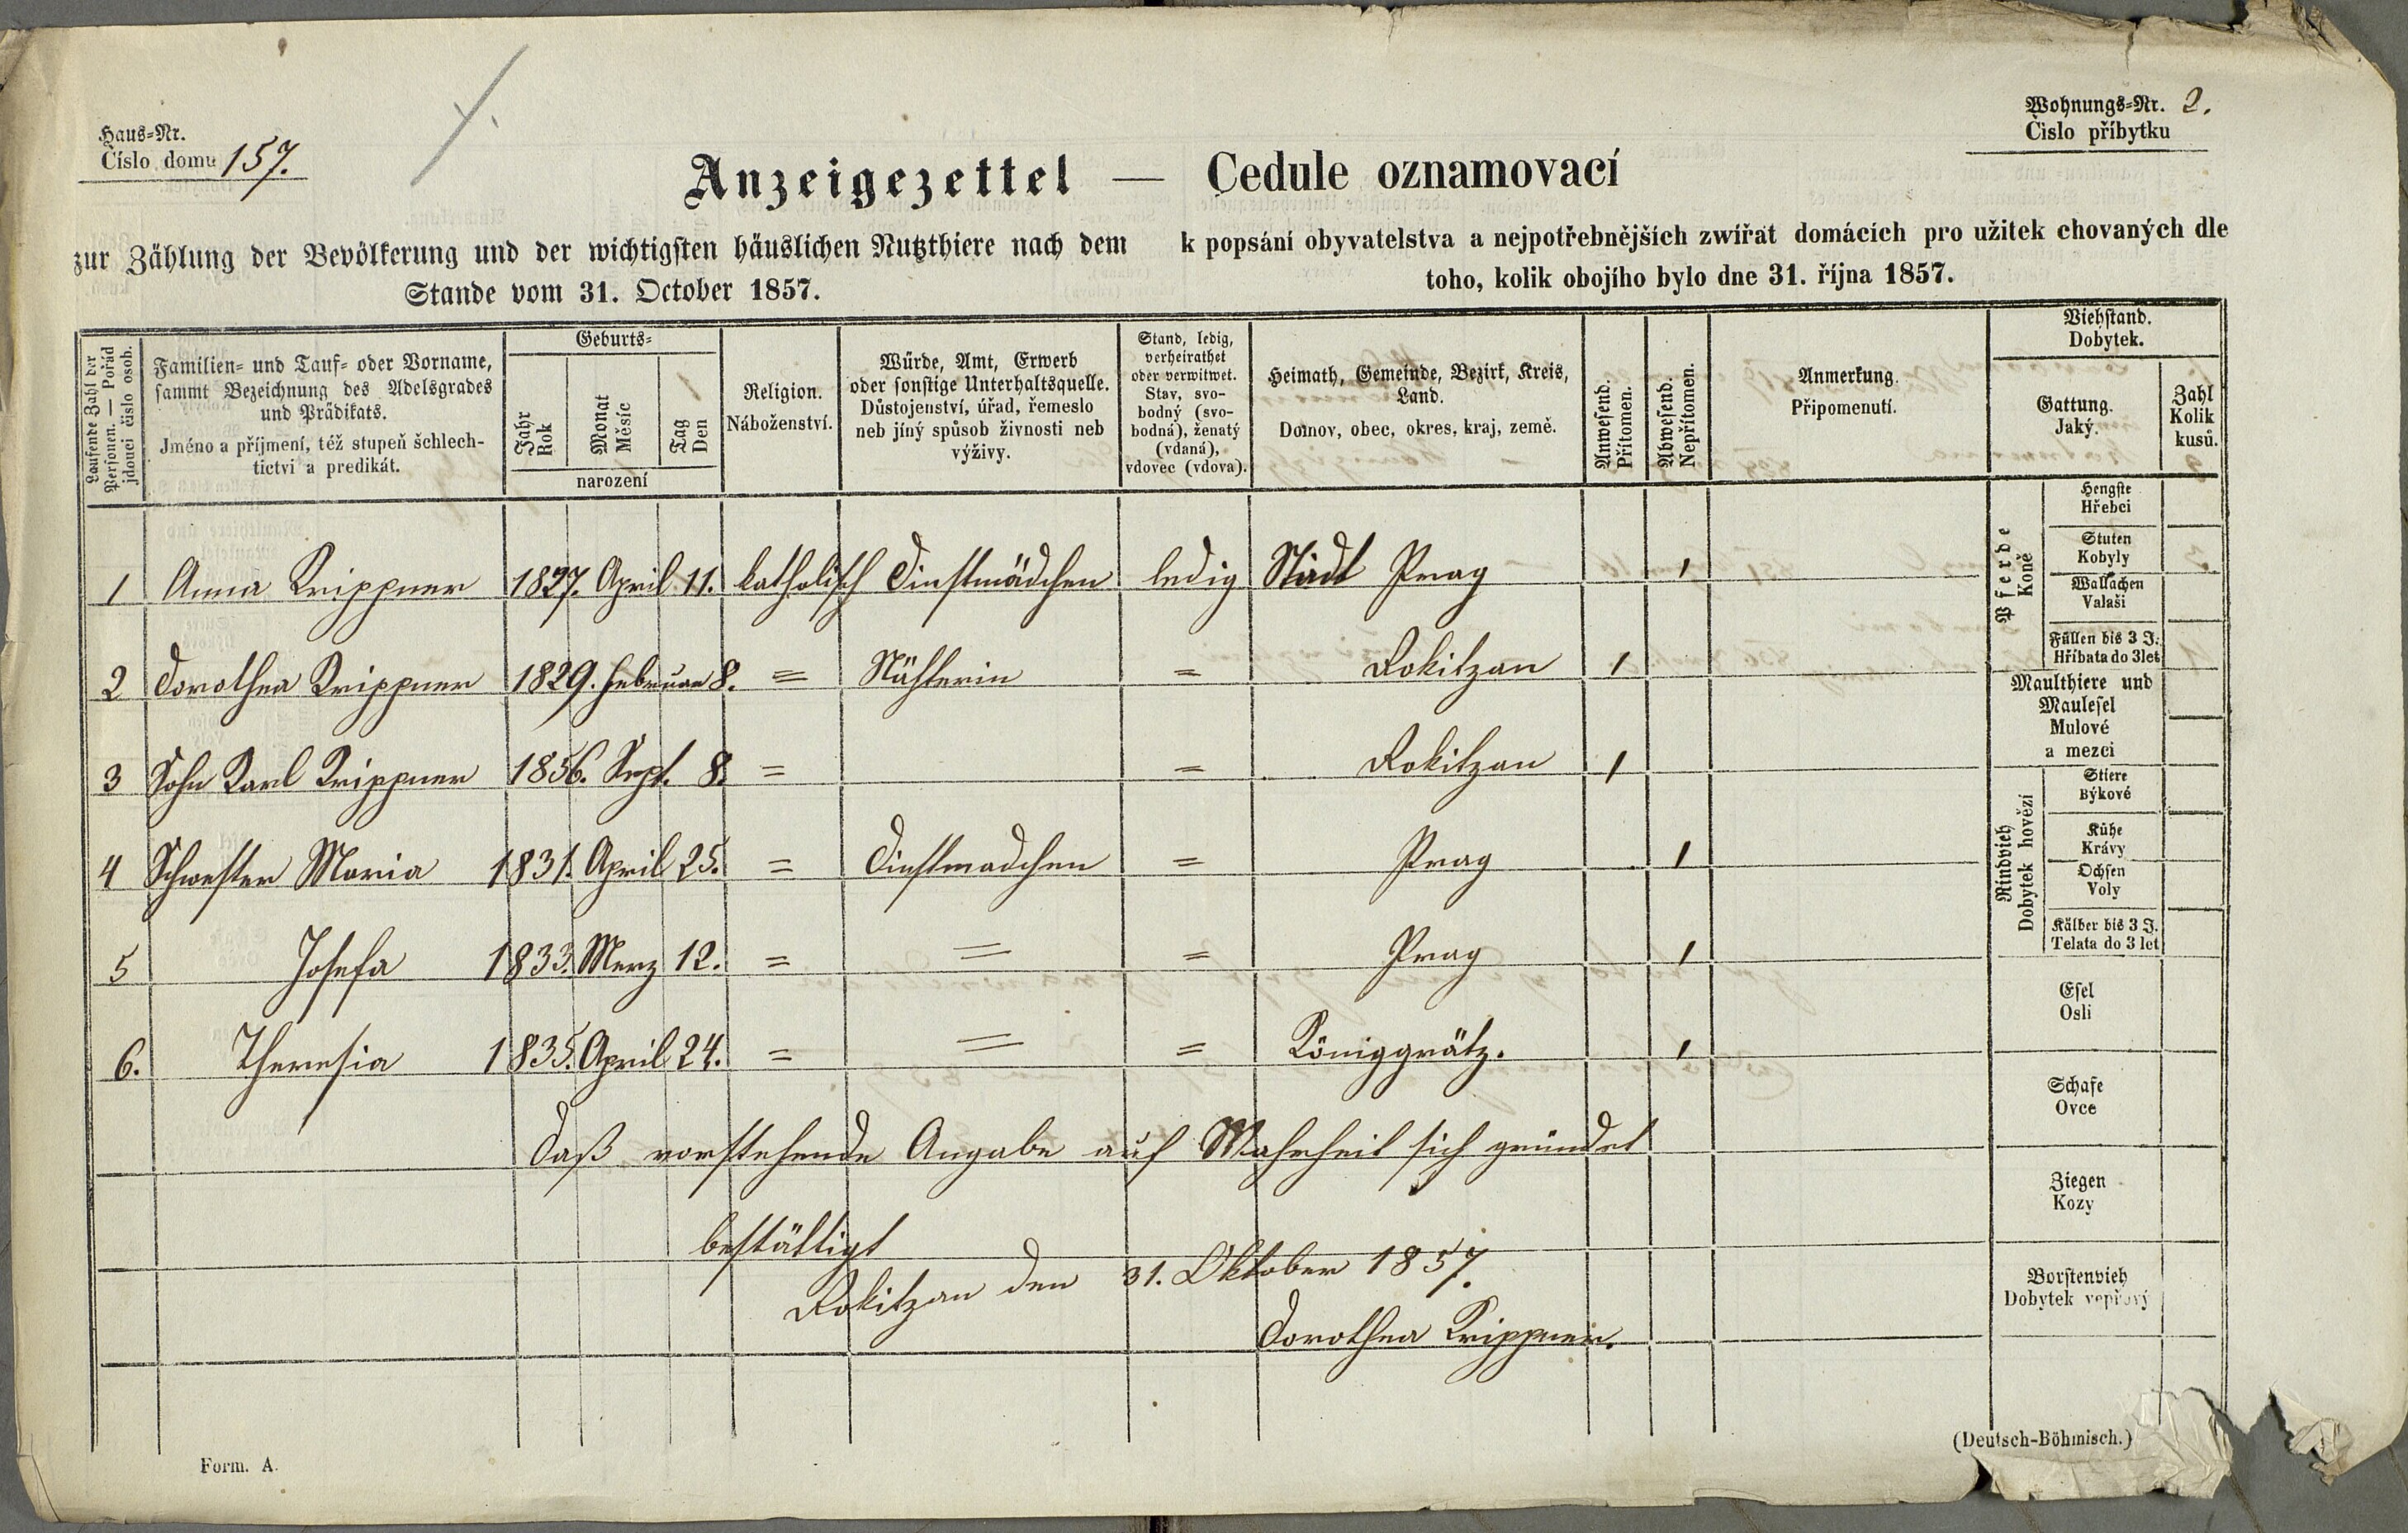 Haus-Nr.
Číslo domu 157.
Wohnungs-Nr. 2.
Čislo příbytku
Anzeigezettel — Cedule oznamovací
zur Zählung der Bevölkerung und der wichtigsten häuslichen Nutzthiere nach dem
Stande vom 31. October 1857.
k popsání obyvatelstva a nejpotřebnějších zwířat domácích pro užitek chovaných dle
toho, kolik obojího bylo dne 31. října 1857.
Laufende Zahl der
Personen. — Pořád
jdouci čislo osob.
Familien- und Tauf- oder Vorname,
sammt Bezeichnung des Adelsgrades
und Prädikats.
Jméno a příjmení, též stupeň šchlech-
tictvi a predikát.
Geburts-
Jahr
Rok
Monat
Měsíc
Tag
Den
narození
Religion.
Náboženství.
Würde, Amt, Erwerb
oder sonstige Unterhaltsquelle.
Důstojenství, úřad, řemeslo
neb jíný spůsob živnosti neb
výživy.
Stand, ledig,
verheirathet
oder verwitwet.
Stav, svo-
bodný (svo-
bodná), ženatý
(vdaná),
vdovec (vdova).
Heimath, Gemeinde, Bezirk, Kreis,
Land.
Domov, obec, okres, kraj, země.
Anwesend.
Přítomen.
Abwesend.
Nepřítomen.
Anmerkung.
Připomenutí.
Viehstand.
Dobytek.
Gattung.
Jaký.
Zahl
Kolik
kusů.
1 Anna Krippner 1827. April 11. katholisch Dinstmädchen ledig Stadt Prag 1
2 Dorothea Krippner 1829. Februar 8. = Nähterin = Rokitzan 1
3 Sohn Karl Krippner 1856. Sept. 8. = = Rokitzan 1
4 Schwester Maria 1831. April 25. = Dinstmadchen = Prag 1
5 Josefa 1833. Merz 12. = = = Prag 1
6. Theresia 1835. April 24. = = = Königgrätz. 1
Daß vorstehende Angabe auf Wahrheit sich gründet
bestättigt
Rokitzan den 31. Oktober 1857.
Dorothea Krippner.
Pferde
Koně
Hengste
Hřebci
Stuten
Kobyly
Wallachen
Valaši
Füllen bis 3 J.
Hříbata do 3 let
Maulthiere und
Maulesel
Mulové
a mezci
Rindvieh
Dobytek hovězí
Stiere
Býkové
Kühe
Krávy
Ochsen
Voly
Kälber bis 3 J.
Telata do 3 let
Esel
Osli
Schafe
Ovce
Ziegen
Kozy
Borstenvieh
Dobytek vepřový
Form. A.
(Deutsch-Böhmisch.)